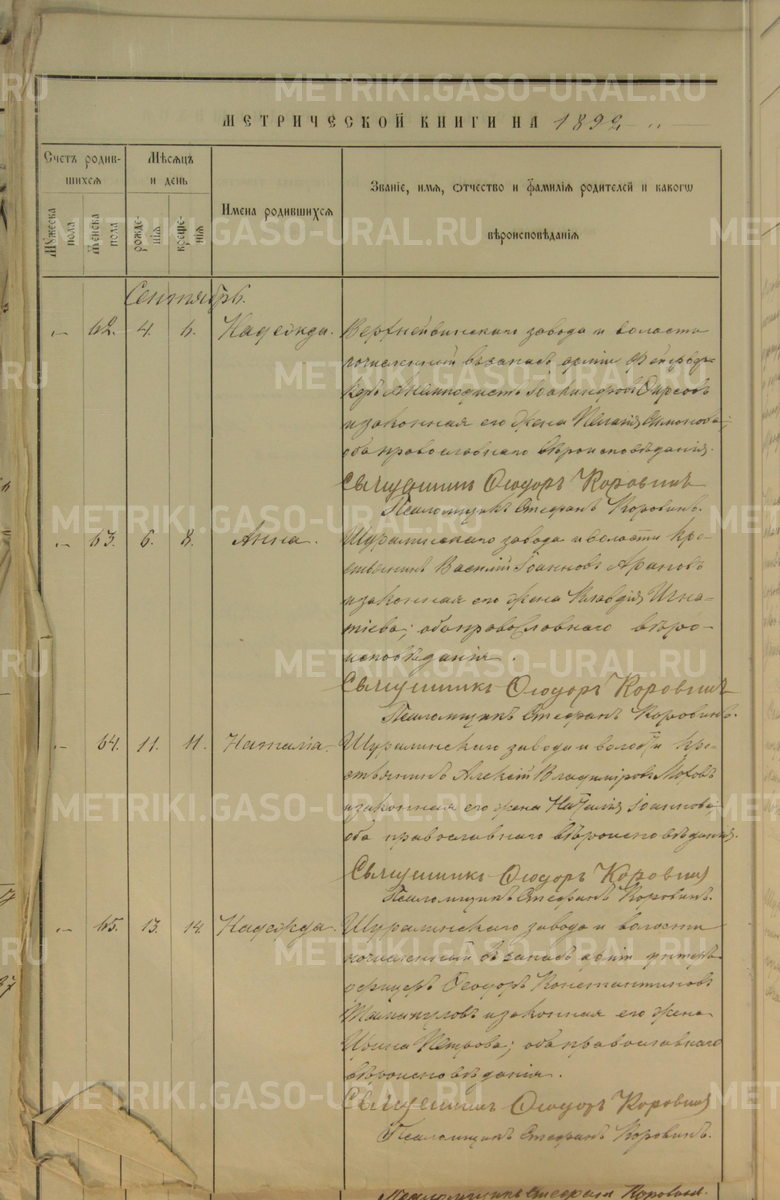 МЕТРИЧЕСКОЙ КНИГИ НА 1892
Счетъ родив-
шихся
Мѣсяцъ
и день
Имена родившихся
Званіе, имя, отчество и фамилія родителей и какого
вѣроисповѣданія
Мужеска
пола
Женска
пола
рожде-
нія
креще-
нія
Сентябрь.
62. 4. 6. Надежда. Верхнейвинскаго завода и волости
численный въ запасъ арміи
Іоакинфовъ Фирсовъ
и законная его жена Пелагія Симонова;
оба православнаго вѣроисповѣданія.
Священникъ Ѳеодоръ Коровинъ
Псаломщикъ Стефанъ Коровинъ.
63. 6. 8. Анна. Шуралинскаго завода и волости кре-
стьянинъ Василій Іоанновъ Араповъ
и законная его жена Клавдія Игна-
тіева; оба православнаго вѣро-
исповѣданія.
Священникъ Ѳеодоръ Коровинъ
Псаломщикъ Стефанъ Коровинъ.
64. 11. 11. Наталія. Шуралинскаго завода и волости кре-
стьянинъ Алексій Владиміровъ Моховъ
и законная его жена Наталія Іоаннова;
оба православнаго вѣроисповѣданія.
Священникъ Ѳеодоръ Коровинъ
Псаломщикъ Стефанъ Коровинъ.
65. 13. 14. Надежда. Шуралинскаго завода и волости
численный въ запасъ арміи унтеръ-
офицеръ Ѳеодоръ Константиновъ
и законная его жена
Петрова; оба православнаго
вѣроисповѣданія.
Священникъ Ѳеодоръ Коровинъ
Псаломщикъ Стефанъ Коровинъ.
Псаломщикъ Стефанъ Коровинъ
METRIKI.GASO-URAL.RU